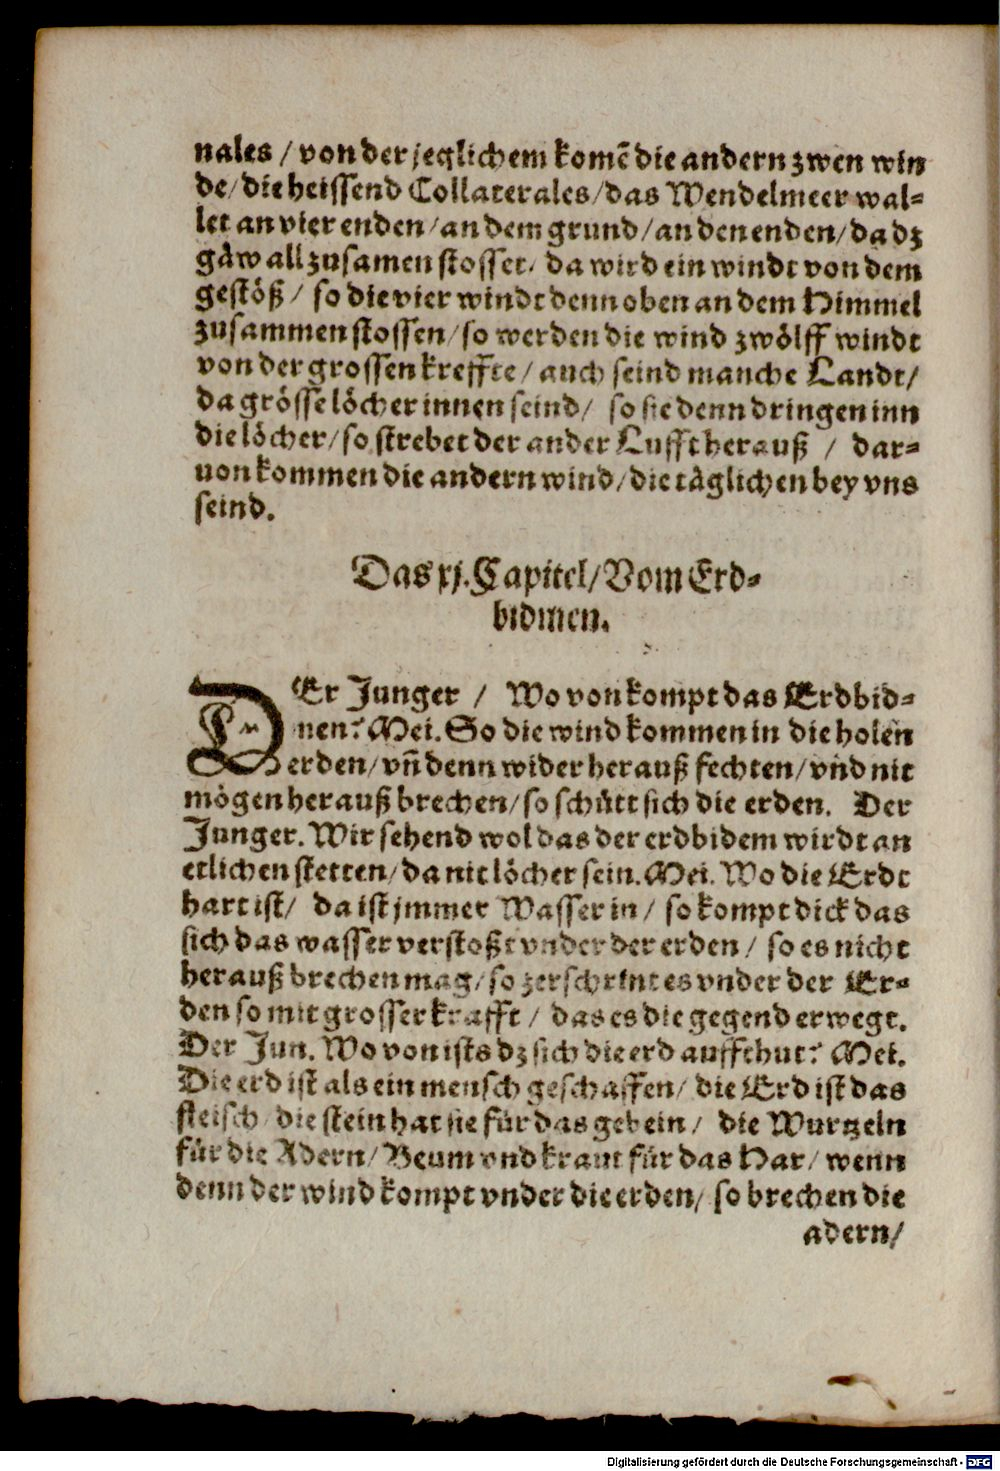 nales / von der jeglichem komē die andern zwen win
de / die heissend Collaterales / das Wendelmeer wal⸗
let an vier enden / an dem grund / an den enden / da dz
gäw all zusamen stosset / da wird ein windt von dem
gestöß / so die vier windt denn oben an dem Himmel
zusammen stossen / so werden die wind zwölff windt
von der grossen kreffte / auch seind manche Landt /
da grösse löcher innen seind / so sie denn dringen inn
die löcher / so strebet der ander Lufft herauß / dar⸗
uon kommen die andern wind / die täglichen bey vns
seind.
Das xj. Capitel / Vom Erd⸗
bidmen.
DEr Junger / Wo von kompt das Erdbid⸗
nen? Mei. So die wind kommen in die holen
erden / vñ denn wider herauß fechten / vnd nit
mögen herauß brechen / so schütt sich die erden. Der
Junger. Wir sehend wol das der erdbidem wirdt an
etlichen stetten / da nit löcher sein. Mei. Wo die Erdt
hart ist / da ist jmmer Wasser in / so kompt dick das
sich das wasser verstoßt vnder der erden / so es nicht
herauß brechen mag / so zerschrint es vnder der Er⸗
den so mit grosser krafft / das es die gegend erwegt.
Der Jun. Wo von ists dz sich die erd auffthut? Mei.
Die erd ist als ein mensch geschaffen / die Erd ist das
fleisch / die stein hat sie für das gebein / die Wurtzeln
für die Adern / Beum vnd kraut für das Har / wenn
denn der wind kompt vnder die erden / so brechen die
adern /
Digitalisierung gefördert durch die Deutsche Forschungsgemeinschaft - DFG